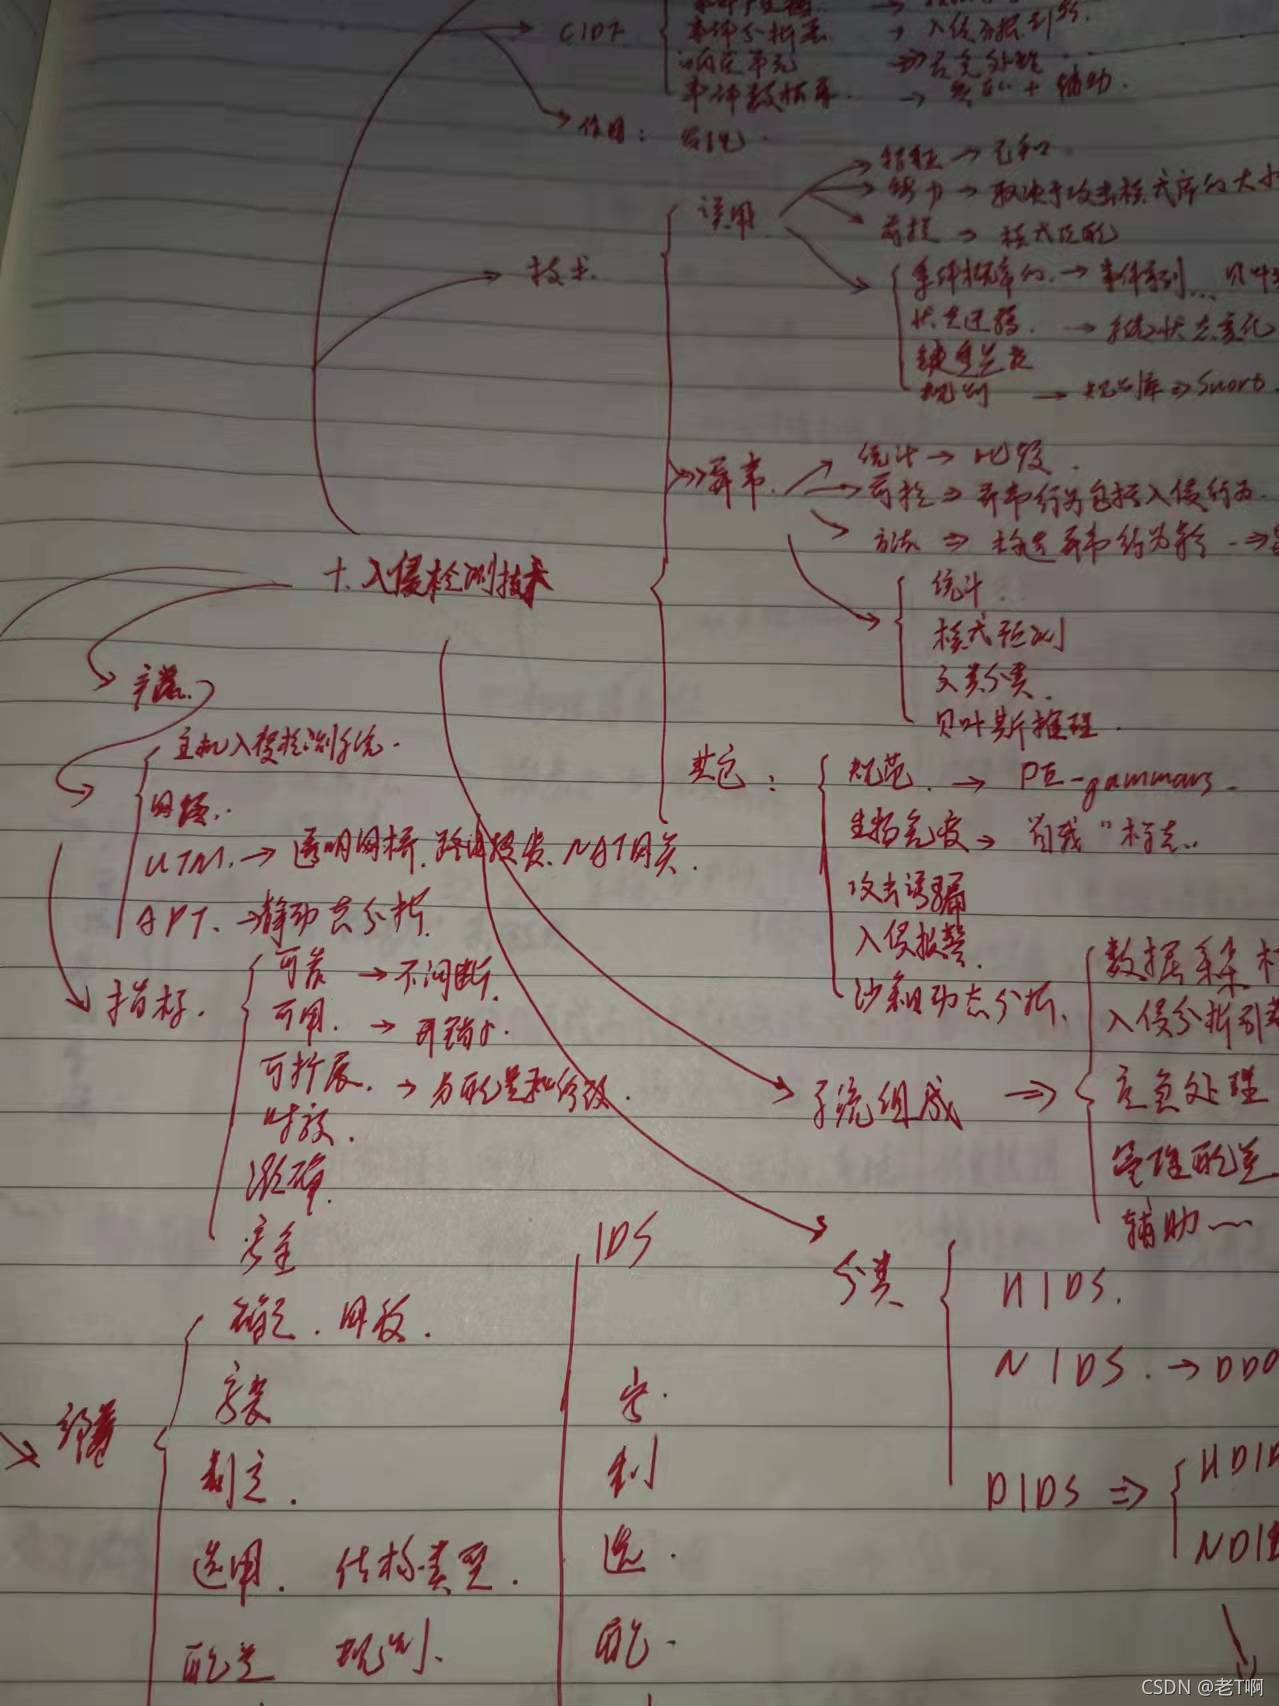 CIDF
事件分析器 →
响应单元 ⇒ 应急处理
事件数据库 → + 辅助.
作用:
技术.
误用
→ 已知
能力 → 取决于攻击模式库的大小
前提 → 模式匹配
条件概率的 → 事件序列...贝叶
状态迁移. → 系统状态变化
键盘监控
规则 → 规则库⇒Snort.
异常.
统计 → 比较.
前提 ⇒ 异常行为包括入侵行为.
方法 ⇒ 构造异常行为集合 →
统计.
模式预测
文本分类.
贝叶斯推理.
其它:
规范. → PE-gammars.
生物免疫 → 自我"标志..
攻击诱骗
入侵报警.
沙箱动态分析.
十. 入侵检测技术
产品.
主机入侵检测系统.
网络..
UTM. → 透明网桥. 路由转发. NAT网关.
APT. → 静动态分析.
指标.
可靠 → 不间断.
可用. → 开销小.
可扩展. → 易配置和修改.
时效.
准确.
安全
系统组成 ⇒
数据采集
入侵分析引擎
应急处理
管理配置
辅助
分类
HIDS.
NIDS. → DDO
DIDS ⇒
HDID
NDI
部署
确定. 网段.
安装
制定.
选用. 结构类型.
配置 规则.
IDS
安.
制
选.
配.
CSDN @老T啊